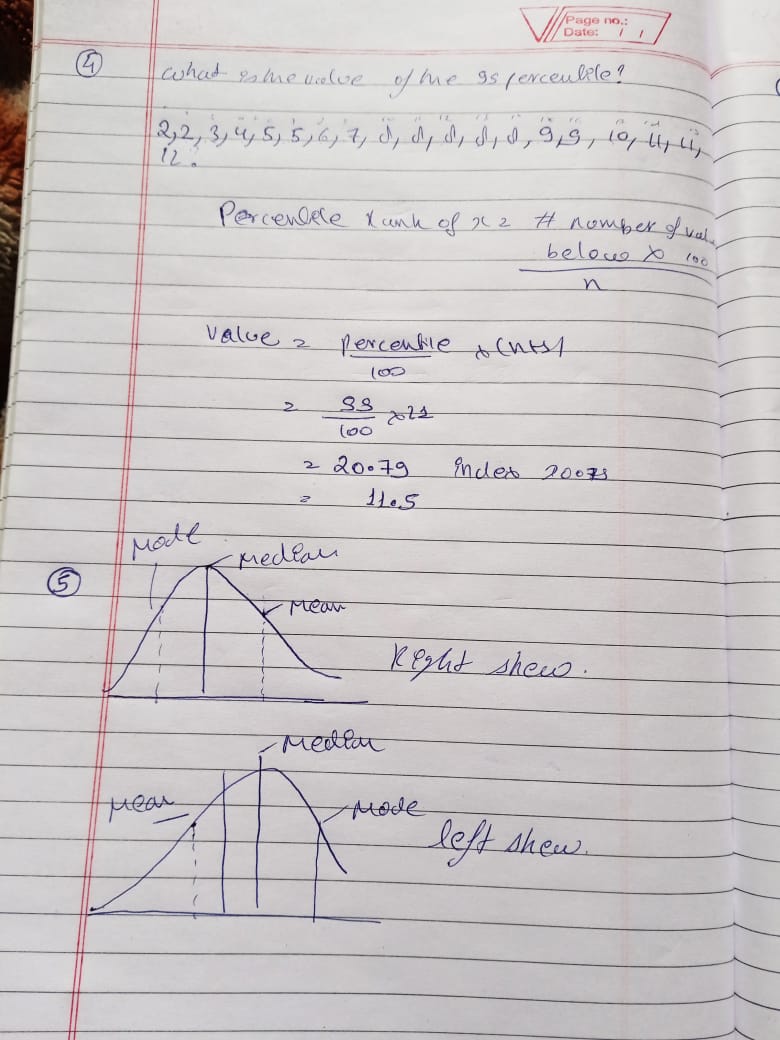 Page no.:
Date: / /
④ What is the value of the 99 percentile?
2,2,3,4,5,5,6,7,8,8,8,8,8,9,9,10,11,11,
12.
Percentile rank of x = # number of
below × 100
n
Value = percentile × (n+1)
100
= 99 × 21
100
= 20.79 index
= 11.5
Mode
⑤ Median
Mean
Right skew.
Median
Mean
Mode
left skew.